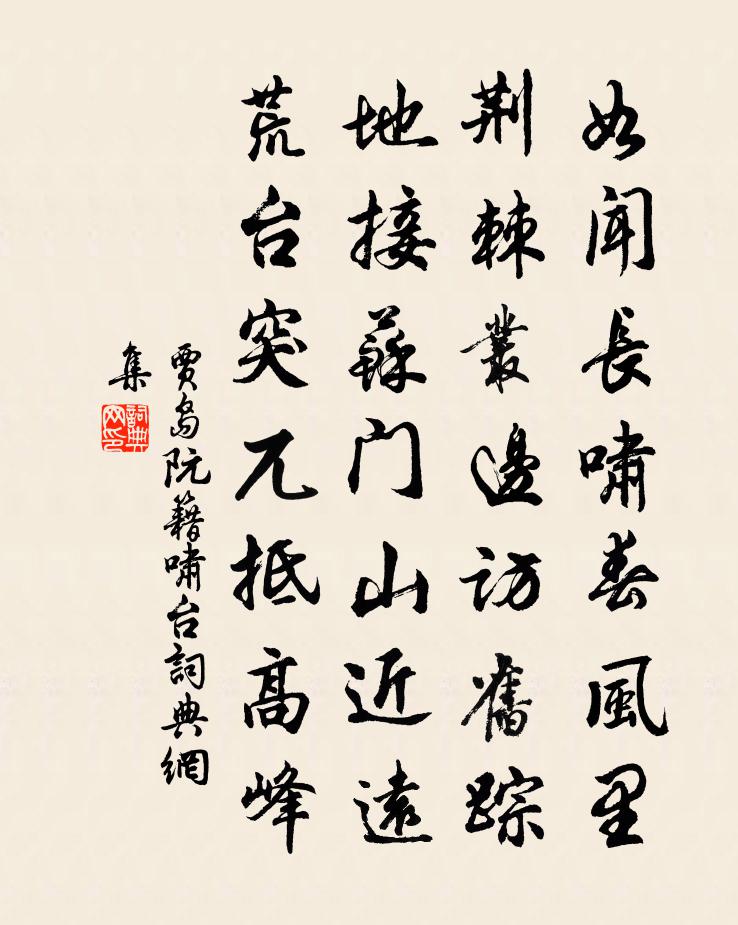 如闻長啸春風里
荆棘叢邊访舊踪
地接蘇门山近遠
荒台突兀抵高峰
賈島阮籍啸台詞典網
集
詞典网印